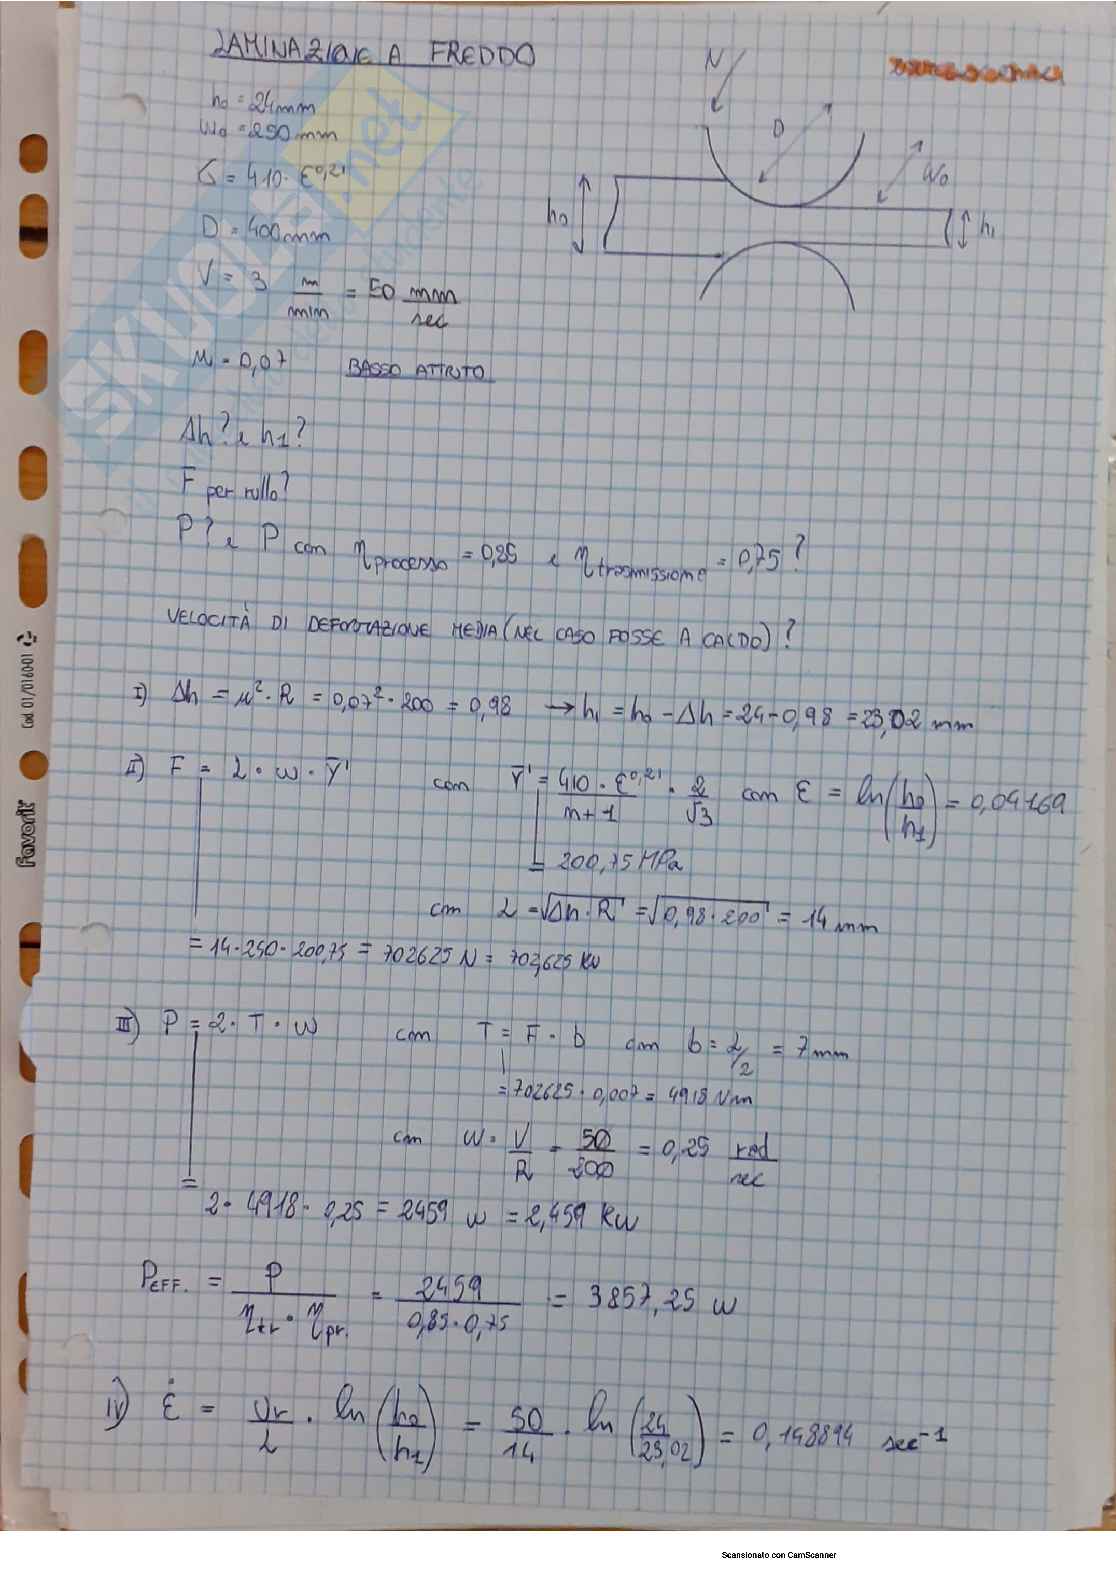 LAMINAZIONE A FREDDO
h₀ = 24mm
W₀ = 250mm
σ = 410 · ε^0,21
D = 400mm
V = 3 m/min = 50 mm/sec
μ = 0,07 BASSO ATTRITO
N
D
W₀
h₀
h₁
Δh? e h₁?
F per rullo?
P? e P con η processo = 0,85 e η trasmissione = 0,75?
VELOCITÀ DI DEFORMAZIONE MEDIA (NEL CASO FOSSE A CALDO)?
I) Δh = μ² · R = 0,07² · 200 = 0,98 → h₁ = h₀ - Δh = 24 - 0,98 = 23,02 mm
II) F = L · w · Ȳ' con Ȳ' = 410 · ε^0,21 / n+1 · 2/√3 con ε = ln(h₀/h₁) = 0,04169
= 200,75 MPa
con L = √Δh · R = √0,98 · 200 = 14 mm
= 14 · 250 · 200,75 = 702625 N = 702,625 KN
III) P = 2 · T · ω con T = F · b con b = L/2 = 7 mm
= 702625 · 0,007 = 4918 Nm
con ω = V/R = 50/200 = 0,25 rad/sec
= 2 · 4918 · 0,25 = 2459 W = 2,459 KW
P EFF. = P / ηtr · ηpr. = 2459 / 0,85 · 0,75 = 3857,25 W
IV) ε̇ = Vr/L · ln(h₀/h₁) = 50/14 · ln(24/23,02) = 0,148894 sec⁻¹
SKUOLA.net
favorit
Cod. 01/016001
Scansionato con CamScanner